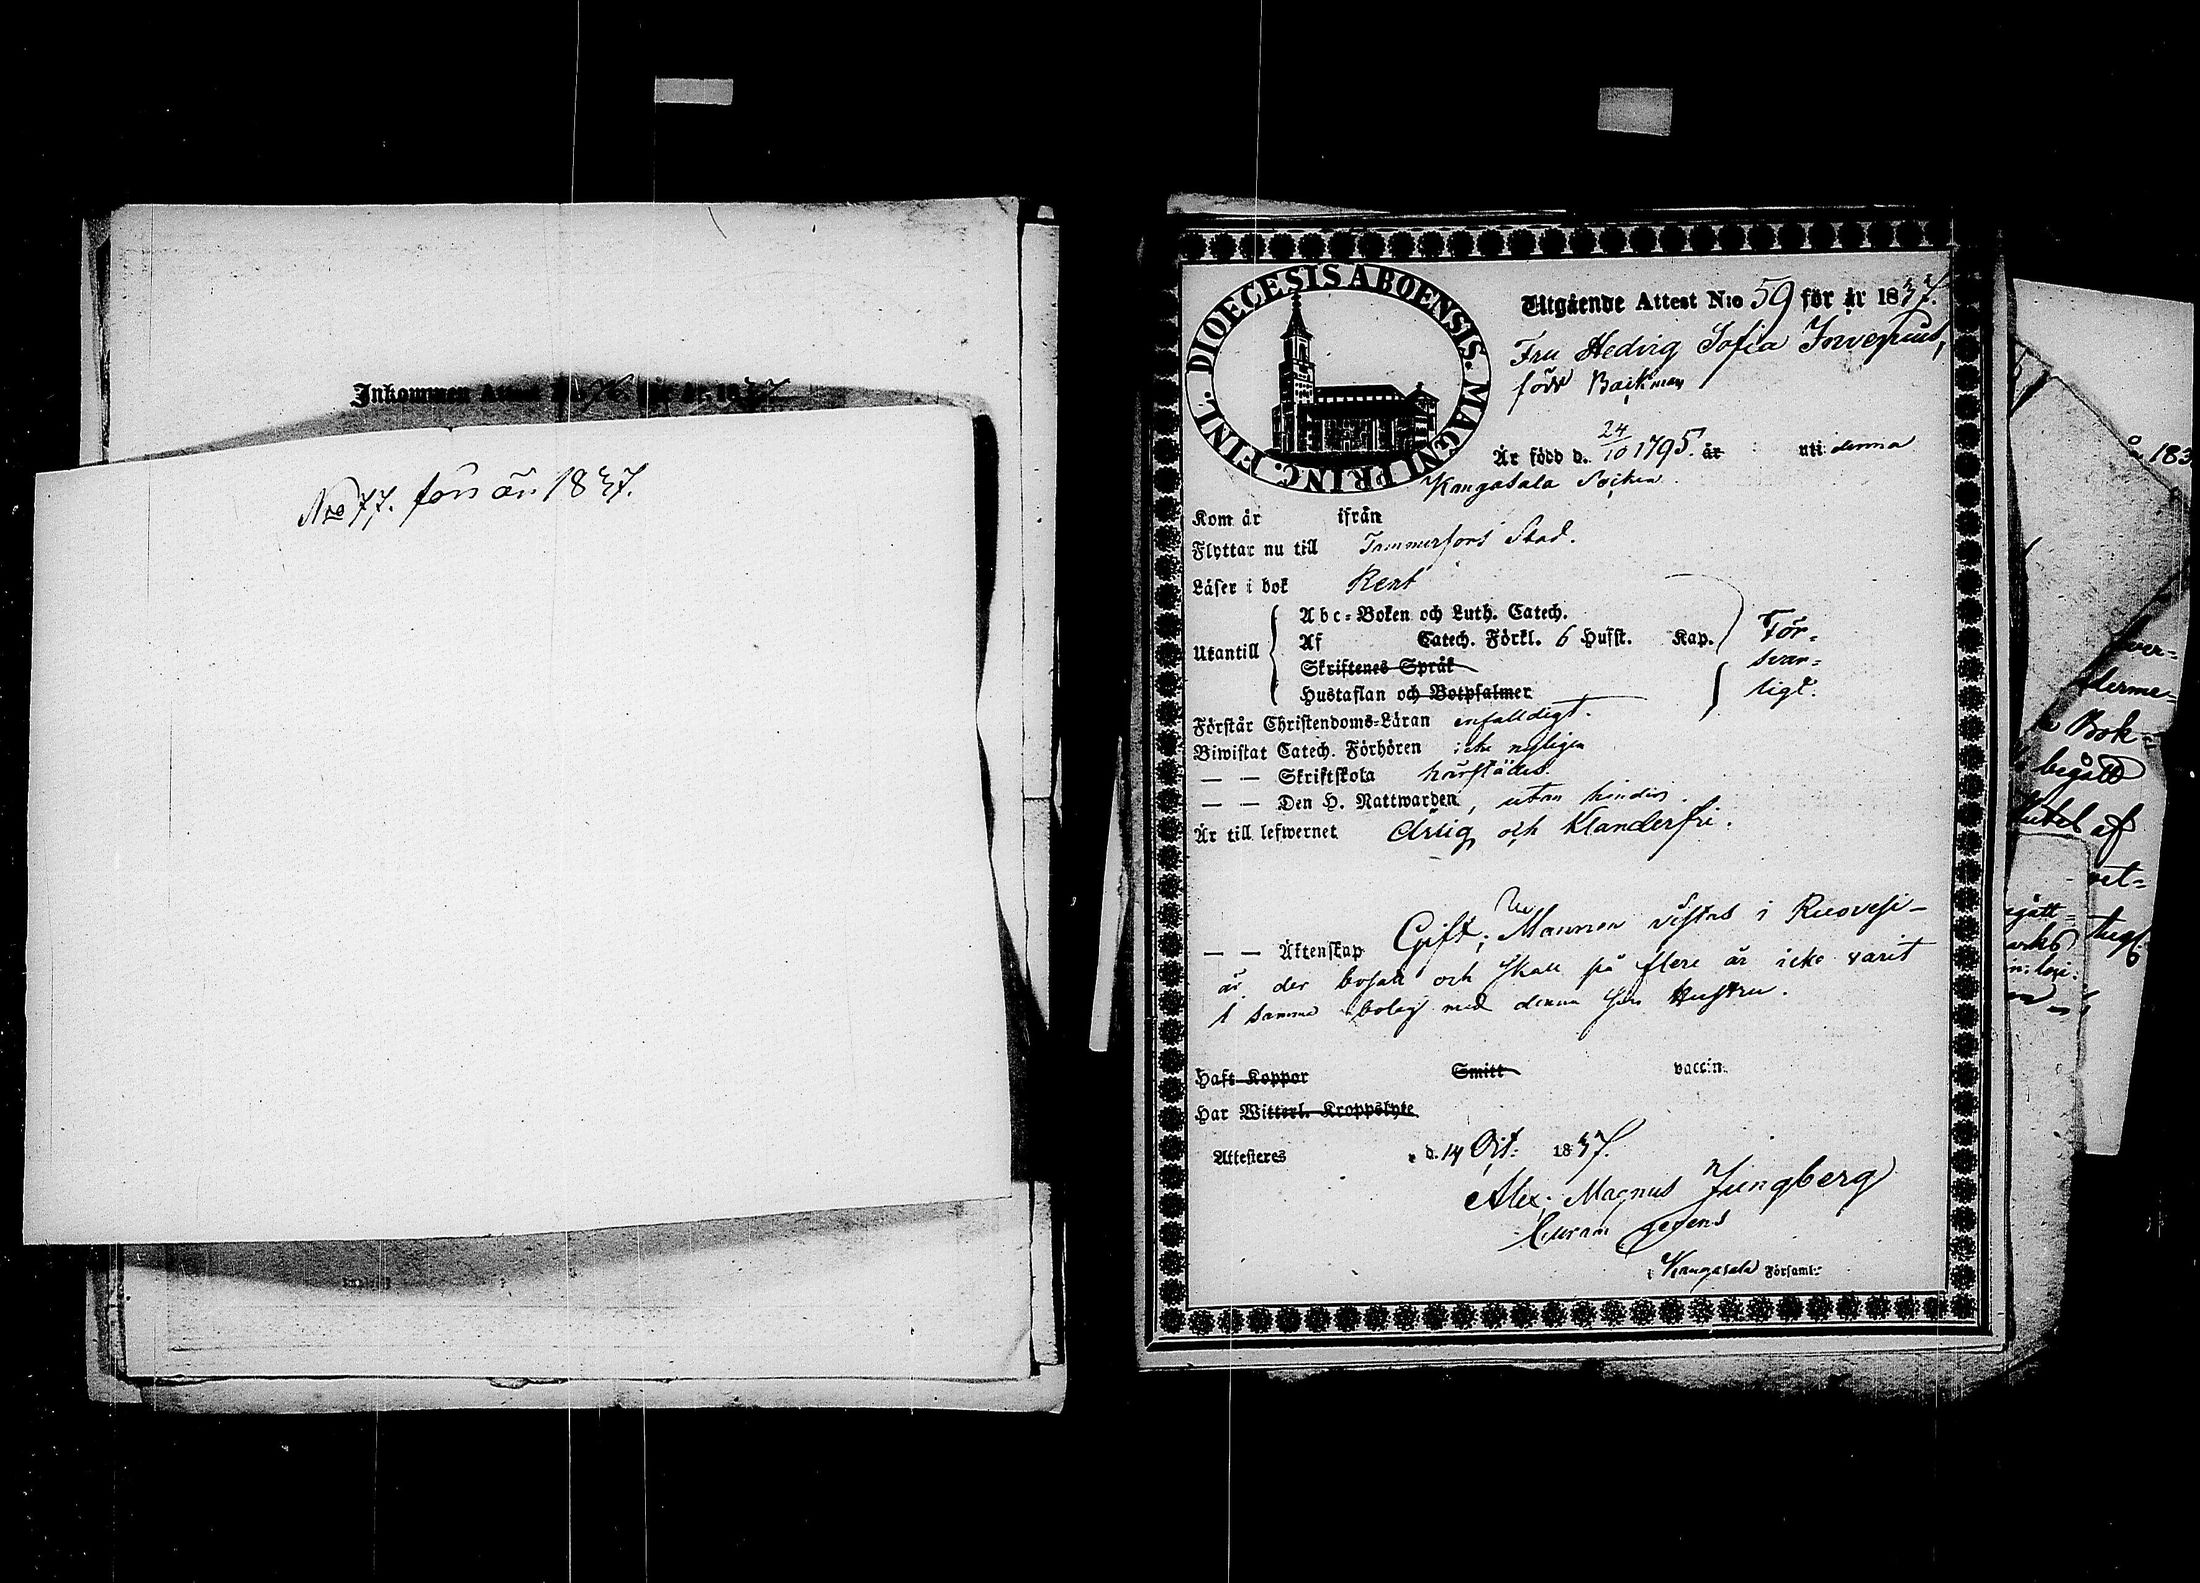 Inkommen Attest N:o 76 för år 1837
N:ro 77. för år 1837.
DIOECESIS ABOENSIS. MAGNI PRINC. FINL.
Utgående Attest N:o 59 för år 1837.
Fru Hedvig Sofia
född Backman
Är född d. 24/10 1795. år uti denna
Kangasala Socken.
Kom år ifrån
Flyttar nu till Tammerfors Stad.
Läser i bok Rent
Abc-Boken och Luth. Catech.
Utantill Af Catech. Förkl. 6 Hufst. Kap. För-
Skriftenes Språk svar-
Hustaflan och Botpsalmer ligt.
Förstår Christendoms-Läran enfalldigt.
Biwistat Catech. Förhören icke nyligen
— — Skriftskola härstädes.
— — Den H. Nattwarden, utan hinder.
Är till lefwernet Ärlig och Klanderfri.
— — Äktenskap Gift; Mannen vistas i Ruovesi-
är der bosatt och skall på flere år icke varit
i samma bolag med denna sin Hustru.
Haft Koppor Smitt vaccin.
Har Witterl. Kroppslyte
Attesteres d. 14 Oct: 1837.
Alex. Magnus Jungberg
i Kangasala Församl:
å 183
Bok-
begått
af